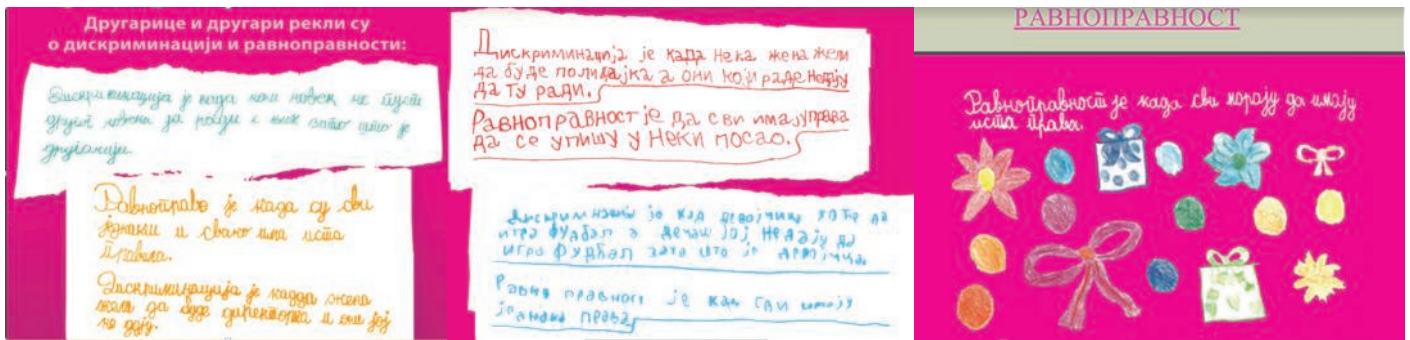 Другарице и другари рекли су
о дискриминацији и равноправности:
Дискриминација је када неки човек не пусти
другог човека да ради с њим зато што је
другачији.
Равноправо је када су сви
једнаки и свако има иста
правила.
Дискриминација је кадда жена
жели да буде директорка и они јој
не дају.
Дискриминација је када нека жена жели
да буде полицајка а они који раде недају
да ту ради.
Равноправност је да сви имају права
да се упишу у неки посао.
је кад девојчица хоће да
игра фудбал а дечаци јој недају да
игра фудбал зато што је девојчица.
Равно правност је кад сви имају
једнака права
РАВНОПРАВНОСТ
Равноправност је када сви морају да имају
иста права.